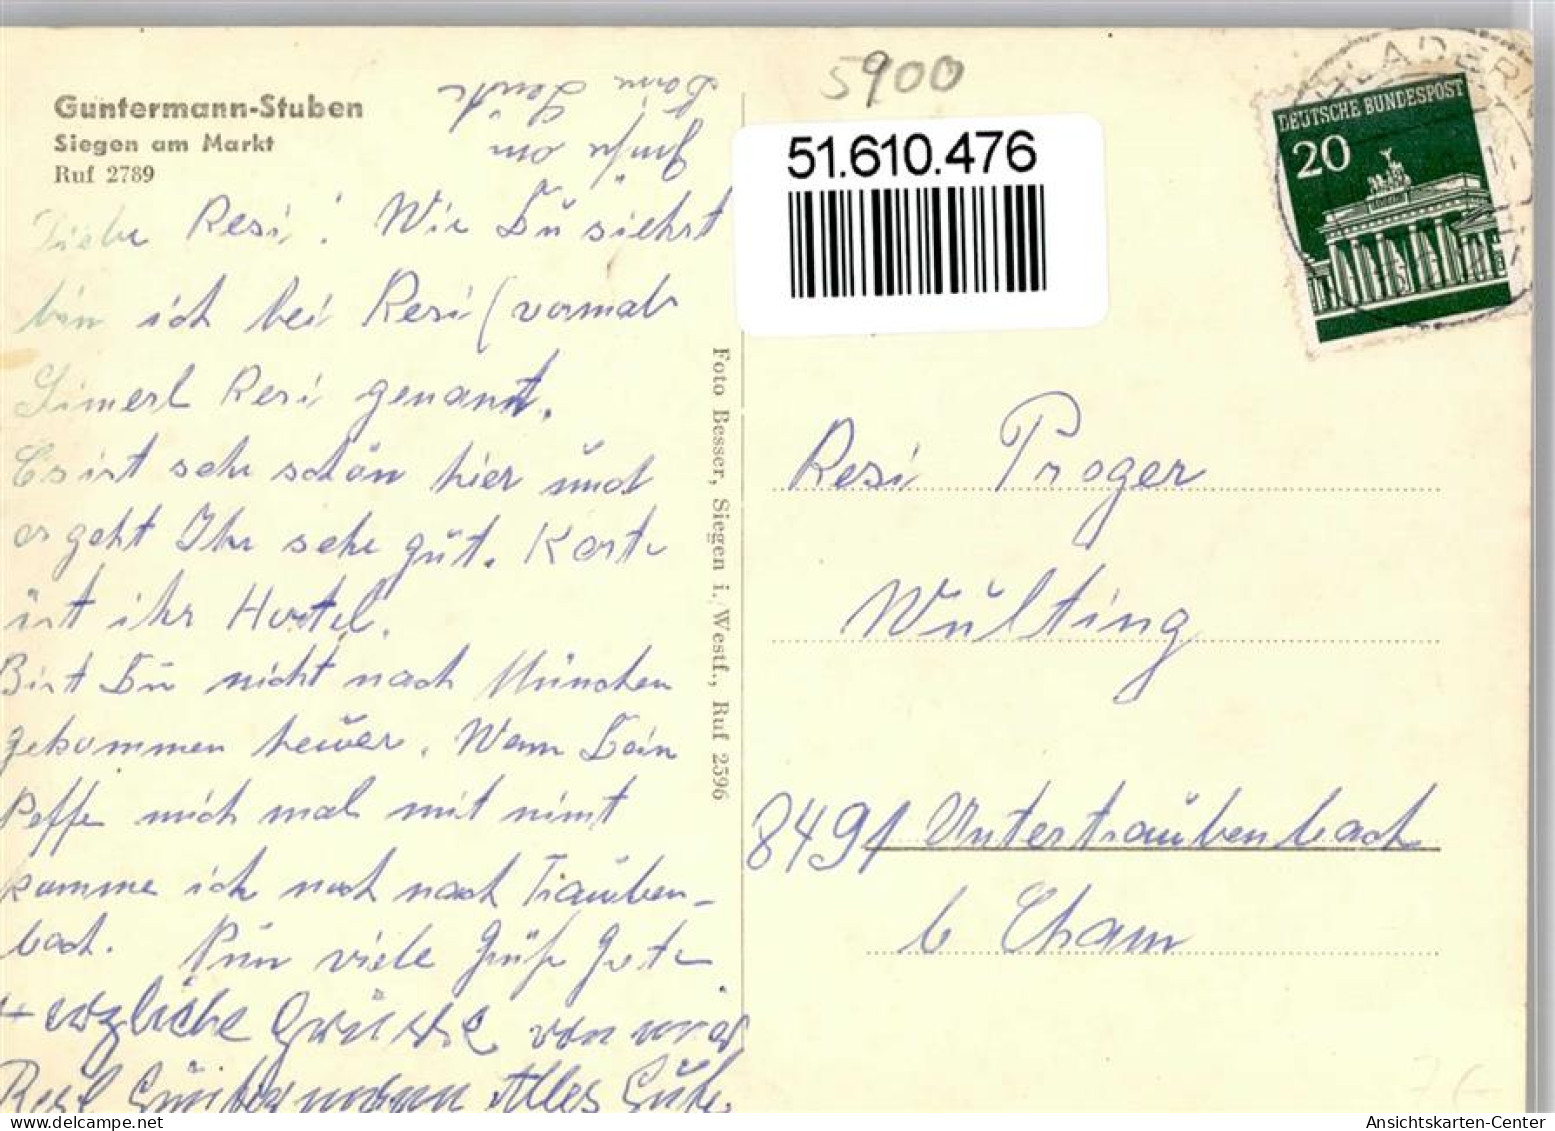 Guntermann-Stuben
Siegen am Markt
Ruf 2789
Liebe Resi! Wie Du siehst
bin ich bei Resi (vormals
Simerl Resi genannt.
Es ist sehr schön hier und
es geht Ihr sehr gut. Karte
ist ihr Hostel.
Bist Du nicht nach München
gekommen heuer. Wenn Dein
Peffe mich mal mit nimt
komme ich noch nach Trauben-
bach. Nun viele Grüße Grete
Herzliche Grüsse von
Resi Alles Gute
Gruß an
Deine Leute
Foto Besser, Siegen i. Westf., Ruf 2596
5900
51.610.476
DEUTSCHE BUNDESPOST
20
Resi Proger
Wulting
8491 Untertraubenbach
b Cham
Ansichtskarten-Center